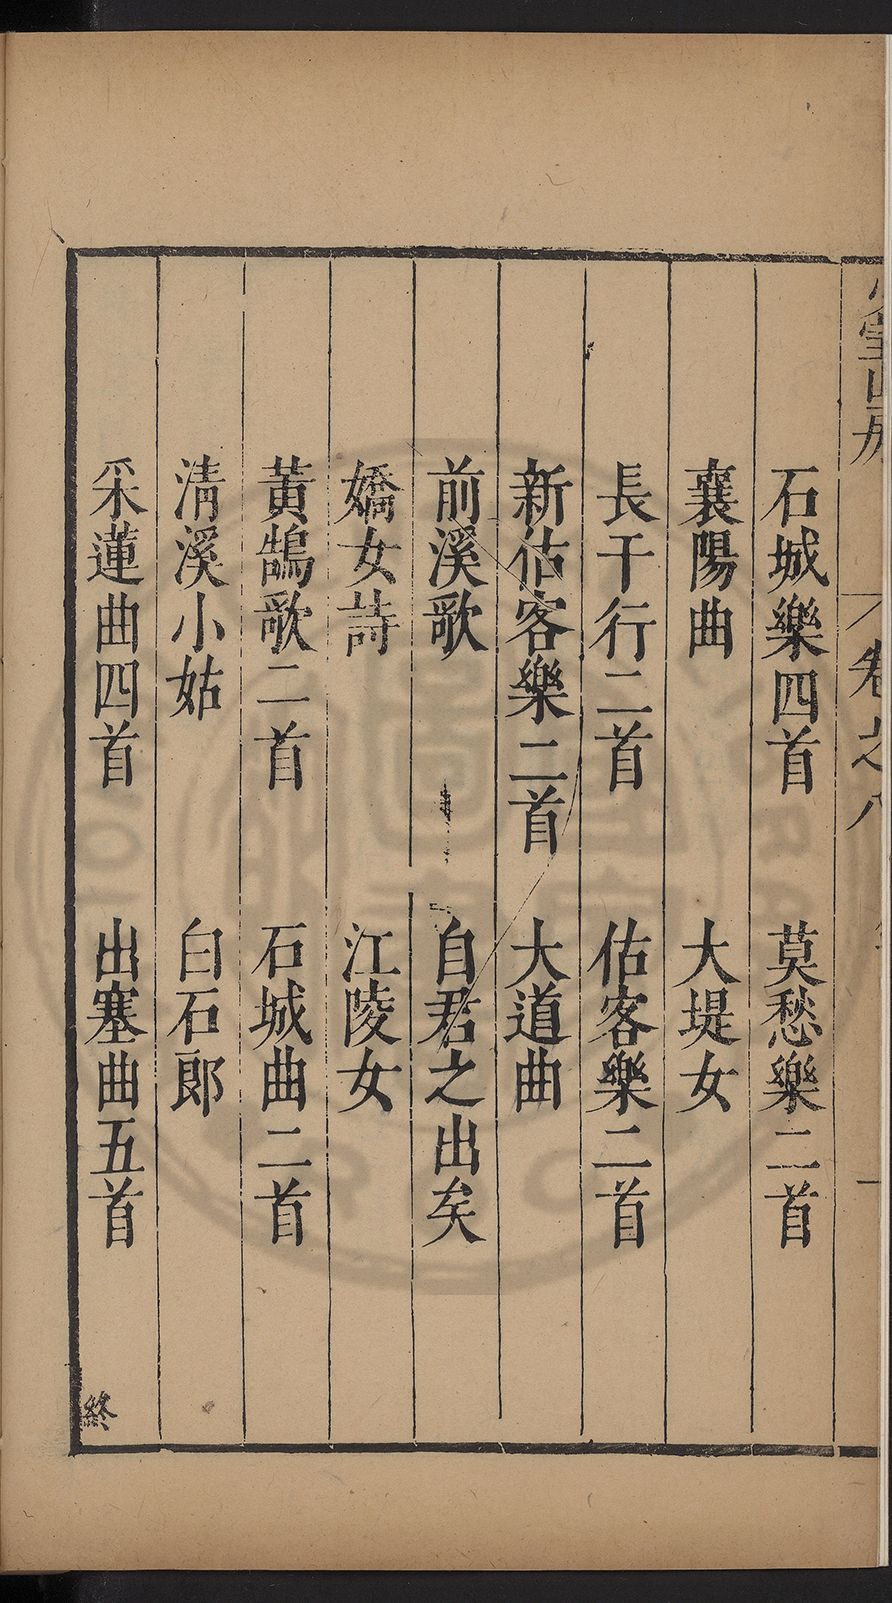 石城樂四首　莫愁樂二首
襄陽曲　大堤女
長干行二首　估客樂二首
新估客樂二首　大道曲
前溪歌　自君之出矣
嬌女詩　江陵女
黃鵠歌二首　石城曲二首
淸溪小姑　白石郎
采蓮曲四首　出塞曲五首
終
卷之八